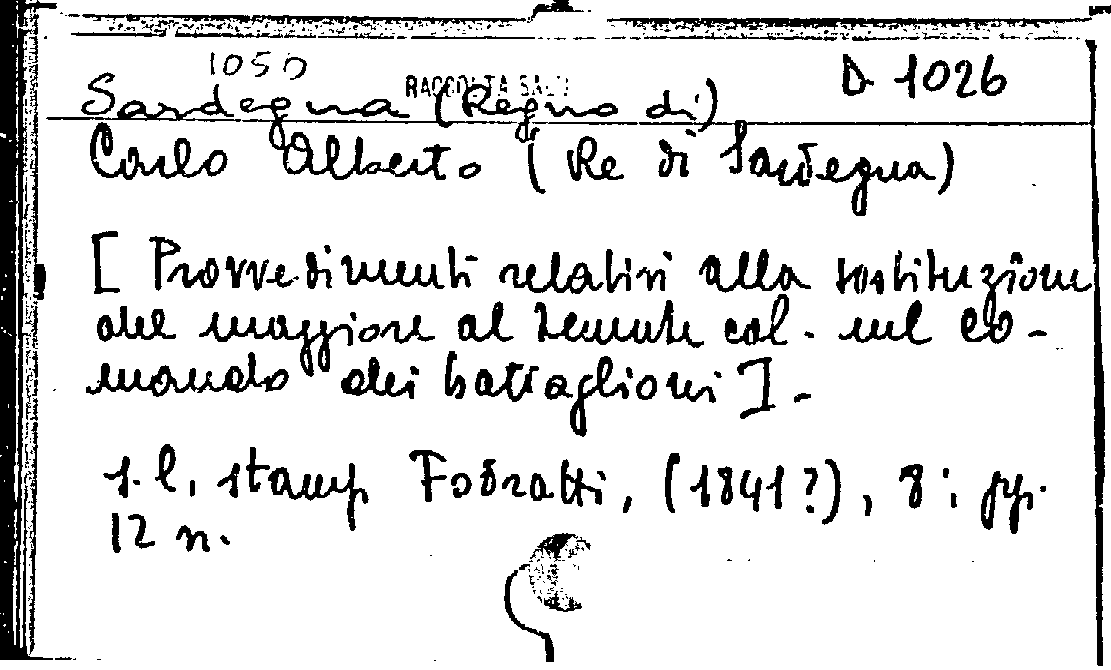 1050
RACCOLTA D 1026
Sardegna (Regno di)
Carlo Alberto (Re di Sardegna)
[ Provvedimenti relativi alla sostituzione
del maggiore al tenente col. nel co-
mando dei battaglioni ] -
s. l., stamp Fodratti, (1841?), 8°; pp.
12 n.